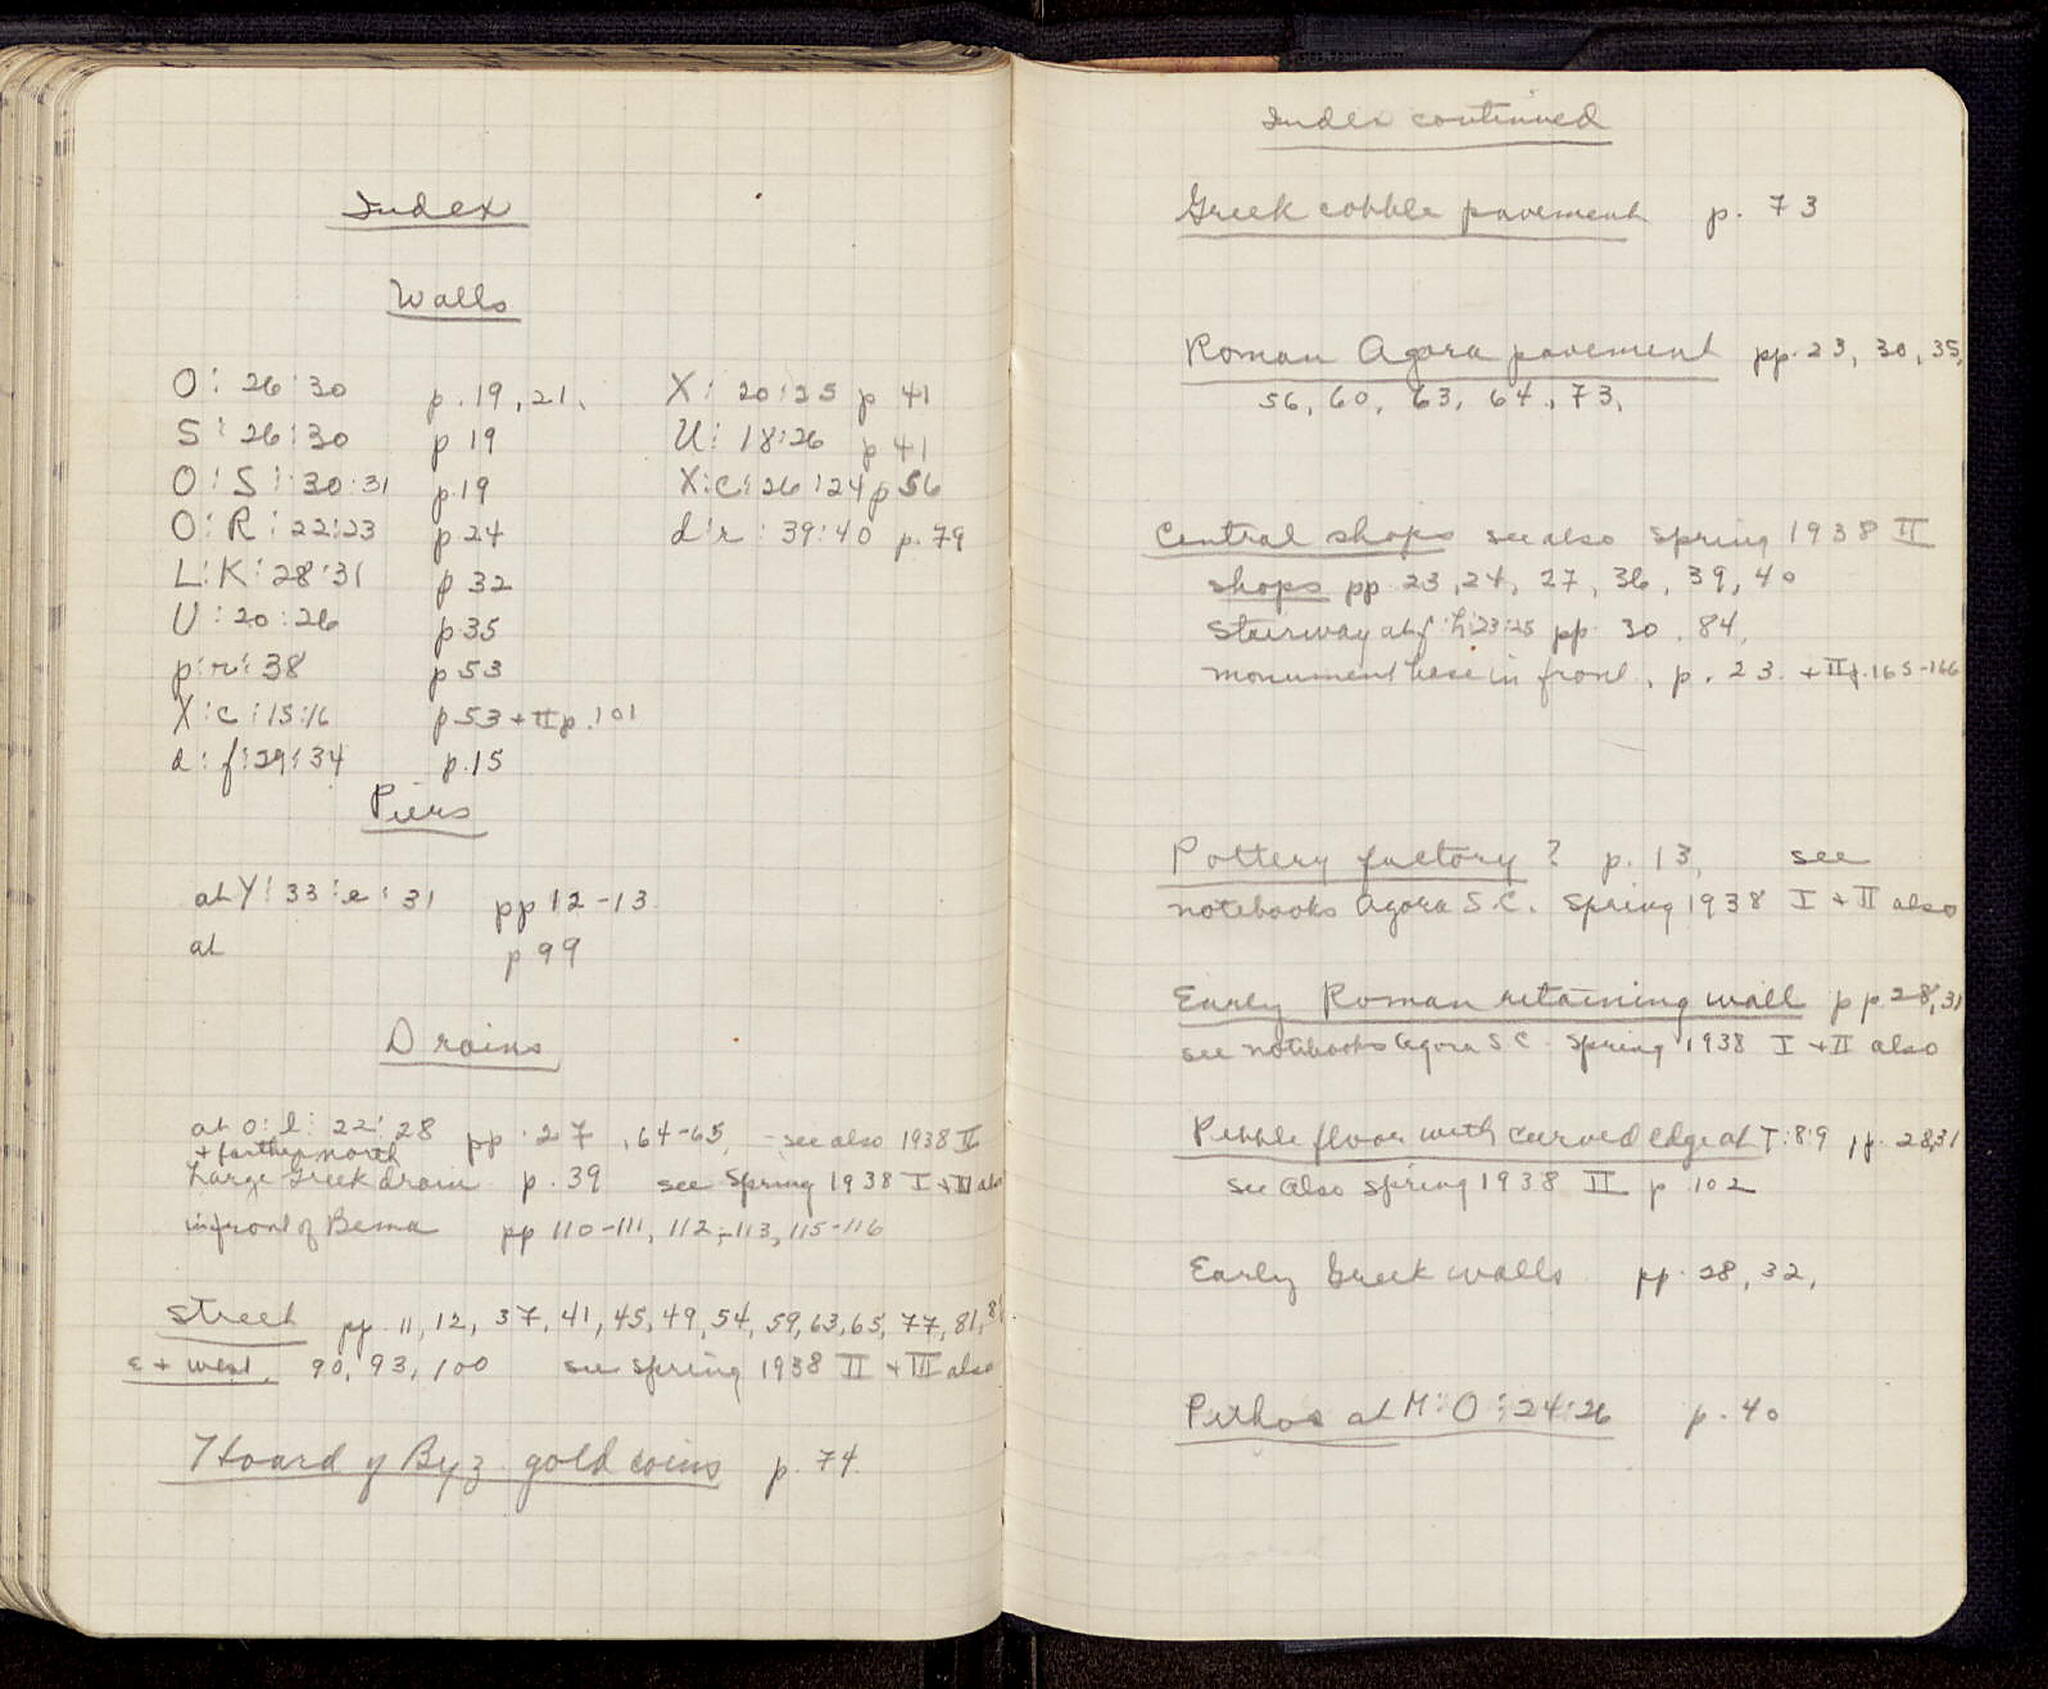 Index
Walls
O : 26 : 30 p. 19, 21,
S : 26 : 30 p 19
O : S : 30 : 31 p. 19
O : R : 22 : 23 p. 24
L : K : 28 : 31 p 32
U : 20 : 26 p. 35
p : r : 38 p 53
X : c : 15 : 16 p. 53 + II p. 101
d : f : 29 : 34 p. 15
X : 20 : 25 p 41
U : 18 : 26 p 41
X : c : 26 : 24 p 56
d : r : 39 : 40 p. 79
Piers
at Y : 33 : e : 31 pp 12-13
at p 99
Drains
at o : l : 22 : 28 pp. 27, 64-65, - see also 1938 II
+ farther north
Large Greek drain p. 39 see Spring 1938 I + III also
in front of Bema pp 110-111, 112-113, 115-116
Street pp. 11, 12, 37, 41, 45, 49, 54, 59, 63, 65, 77, 81,
E + west, 90, 93, 100 see spring 1938 II + III also
Hoard of Byz. gold coins p. 74.
Index continued
Greek cobble pavement p. 73
Roman Agora pavement pp. 23, 30, 35,
56, 60, 63, 64, 73,
Central shops see also Spring 1938 II
shops pp 23, 24, 27, 36, 39, 40
Stairway at f : h : 23 : 25 pp. 30, 84,
monument base in front, p. 23. + II p. 165-166
Pottery factory? p. 13, see
notebooks Agora S.C. Spring 1938 I + II also
Early Roman retaining wall pp. 28, 31
see notebooks Agora S C. Spring 1938 I + II also
Pebble floor with curved edge at T : 8 : 9 pp. 28, 31
see also spring 1938 II p 102
Early Greek walls pp. 28, 32,
Pithos at M : O : 24 : 26 p. 40